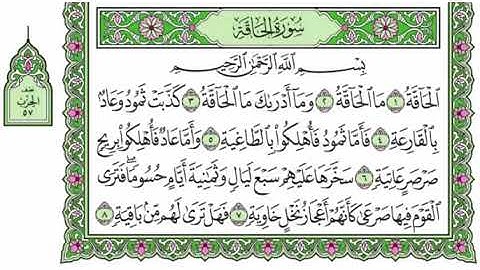 سُورَةُ الْحَاقَّةِ
بِسْمِ اللَّهِ الرَّحْمَٰنِ الرَّحِيمِ
الْحَاقَّةُ ١ مَا الْحَاقَّةُ ٢ وَمَا أَدْرَىٰكَ مَا الْحَاقَّةُ ٣ كَذَّبَتْ ثَمُودُ وَعَادٌ
بِالْقَارِعَةِ ٤ فَأَمَّا ثَمُودُ فَأُهْلِكُوا بِالطَّاغِيَةِ ٥ وَأَمَّا عَادٌ فَأُهْلِكُوا بِرِيحٍ
صَرْصَرٍ عَاتِيَةٍ ٦ سَخَّرَهَا عَلَيْهِمْ سَبْعَ لَيَالٍ وَثَمَٰنِيَةَ أَيَّامٍ حُسُومًا ۖ فَتَرَى
الْقَوْمَ فِيهَا صَرْعَىٰ كَأَنَّهُمْ أَعْجَازُ نَخْلٍ خَاوِيَةٍ ٧ فَهَلْ تَرَىٰ لَهُم مِّنۢ بَاقِيَةٍ ٨
نصف
الحزب
٥٧